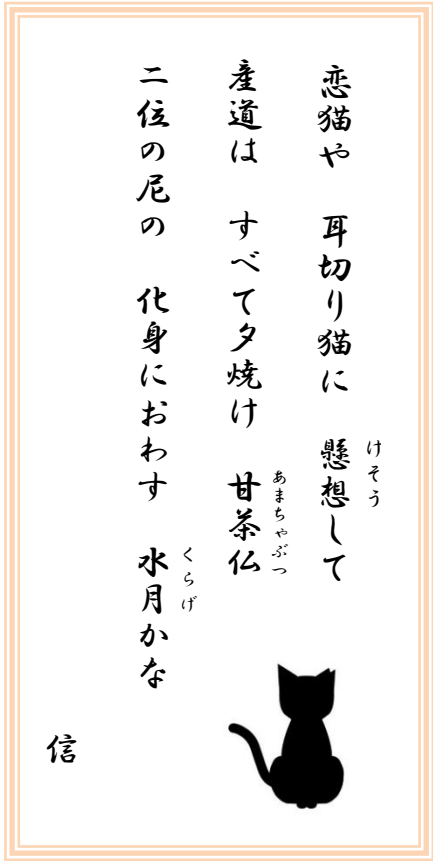 恋猫や　耳切り猫に　懸想して
けそう
産道は　すべて夕焼け　甘茶仏
あまちゃぶつ
二位の尼の　化身におわす　水月かな
くらげ
信